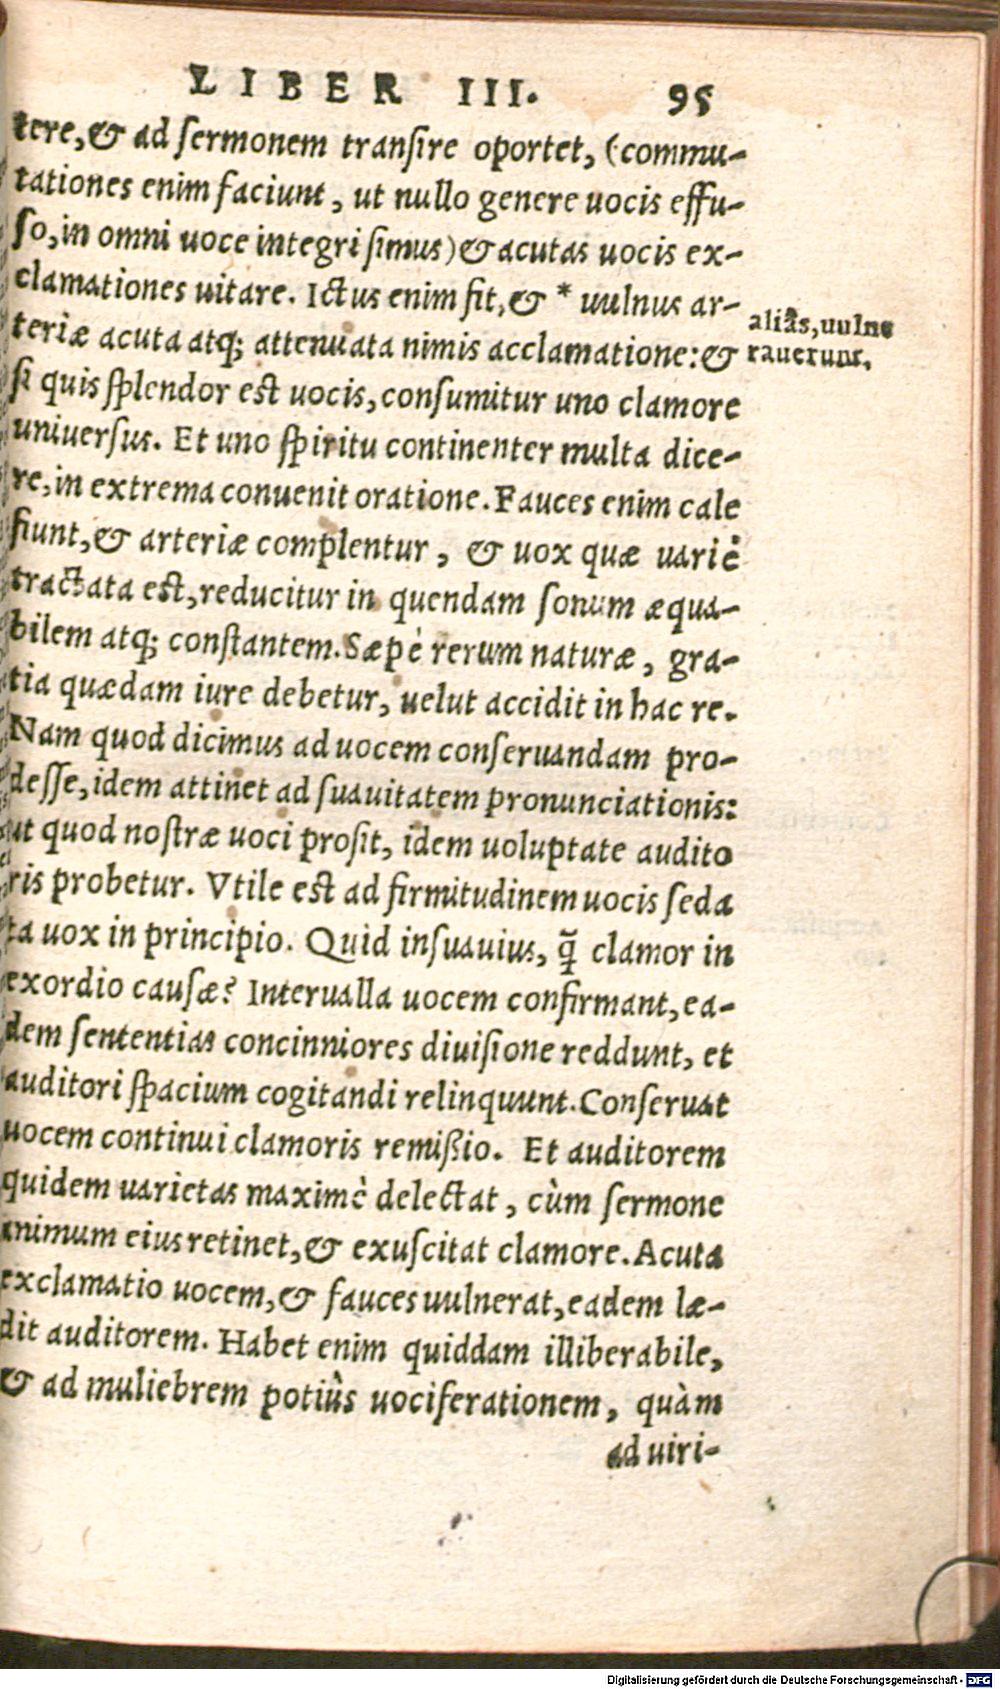 LIBER III. 95
tere, & ad sermonem transire oportet, (commu-
tationes enim faciunt, ut nullo genere uocis effu-
so, in omni uoce integri simus) & acutas uocis ex-
clamationes uitare. Ictus enim fit, & * uulnus ar-
teriæ acuta atq; attenuata nimis acclamatione: &
si quis splendor est uocis, consumitur uno clamore
uniuersus. Et uno spiritu continenter multa dice-
re, in extrema conuenit oratione. Fauces enim cale
fiunt, & arteriæ complentur, & uox quæ uariè
tractata est, reducitur in quendam sonum æqua-
bilem atq; constantem. Sæpè rerum naturæ, gra-
tia quædam iure debetur, uelut accidit in hac re.
Nam quod dicimus ad uocem conseruandam pro-
desse, idem attinet ad suauitatem pronunciationis:
ut quod nostræ uoci prosit, idem uoluptate audito
ris probetur. Vtile est ad firmitudinem uocis seda
ta uox in principio. Quid insuauius, q̃ clamor in
exordio causæ? Interualla uocem confirmant, ea-
dem sententias concinniores diuisione reddunt, et
auditori spacium cogitandi relinquunt. Conseruat
uocem continui clamoris remißio. Et auditorem
quidem uarietas maximè delectat, cùm sermone
animum eius retinet, & exuscitat clamore. Acuta
exclamatio uocem, & fauces uulnerat, eadem læ-
dit auditorem. Habet enim quiddam illiberabile,
& ad muliebrem potiùs uociferationem, quàm
ad uiri-
aliâs, uulne
rauerunt.
Digitalisierung gefördert durch die Deutsche Forschungsgemeinschaft - DFG